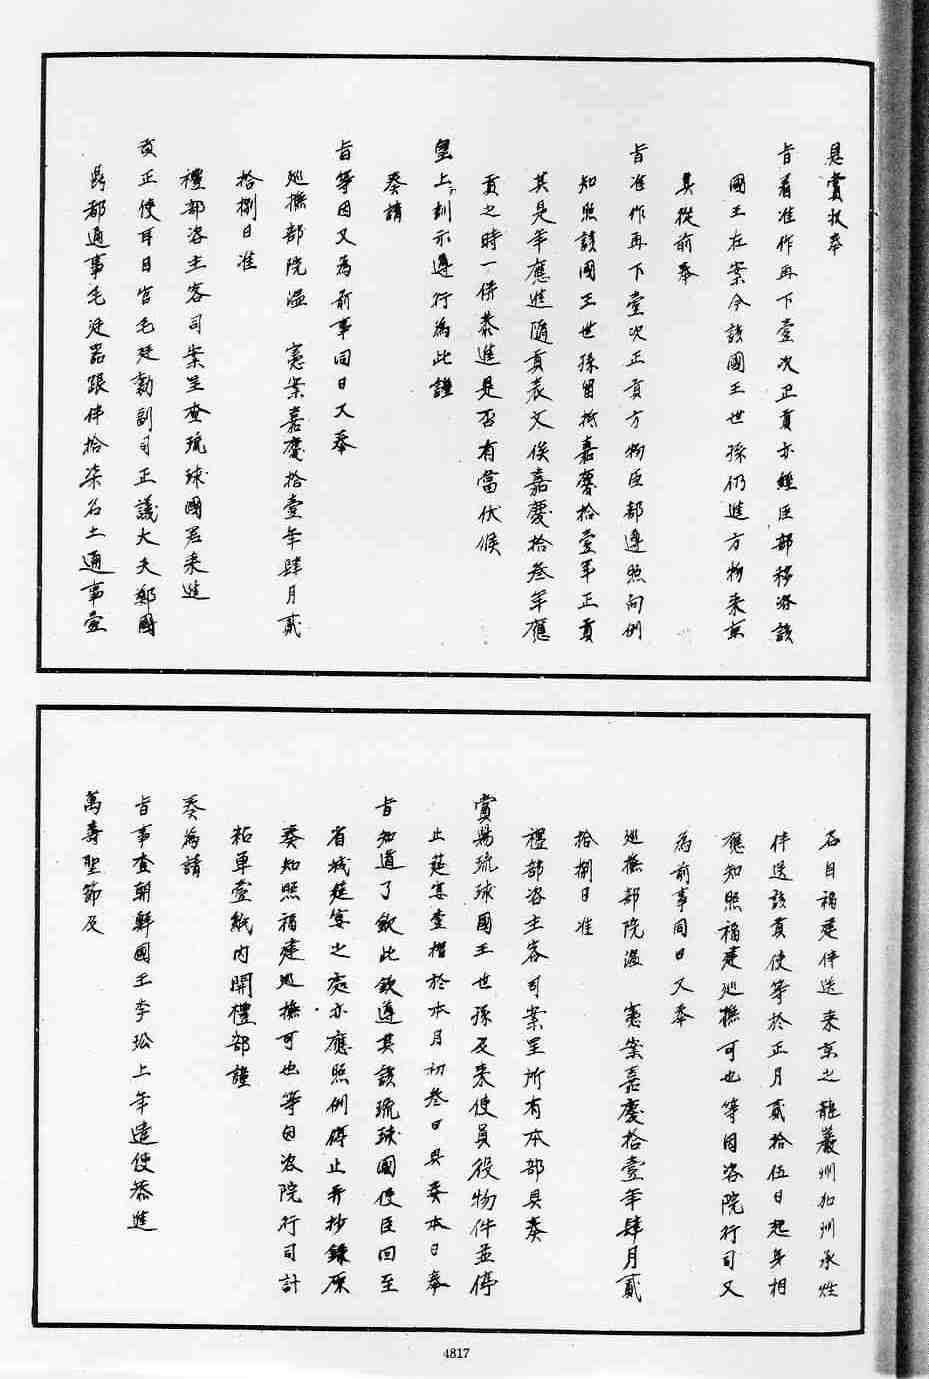 恩賞收奉
旨着准作再下壹次正貢亦經臣部移咨該
國王在案今該國王世孫仍進方物來京
具從前奉
旨准作再下壹次正貢方物臣部遵照向例
知照該國王世孫留抵嘉慶拾壹年正貢
其是年應進隨貢表文俟嘉慶拾叁年應
貢之時一併恭進是否有當伏候
皇上訓示遵行為此謹
奏請
旨等因又為前事同日又奉
巡撫部院溫 憲案嘉慶拾壹年肆月貳
拾捌日准
禮部咨主客司案呈查琉球國君來進
貢正使耳目官毛廷勷副司正議大夫鄭國
鼎都通事毛廷器跟伴拾柒名土通事壹
名自福建伴送來京之龍巖州知州承
伴送該貢使等於正月貳拾伍日起身相
應知照福建巡撫可也等因咨院行司又
為前事同日又奉
巡撫部院溫 憲案嘉慶拾壹年肆月貳
拾捌日准
禮部咨主客司案呈所有本部具奏
賞賜琉球國王世孫及來使員役物件並停
止筵宴壹摺於本月初叁日具奏本日奉
旨知道了欽此欽遵其該琉球國使臣回至
省城筵宴之處亦應照例停止并抄錄原
奏知照福建巡撫可也等因咨院行司計
粘單壹紙內開禮部謹
奏為請
旨事查朝鮮國王李玜上年遣使恭進
萬壽聖節及
4817